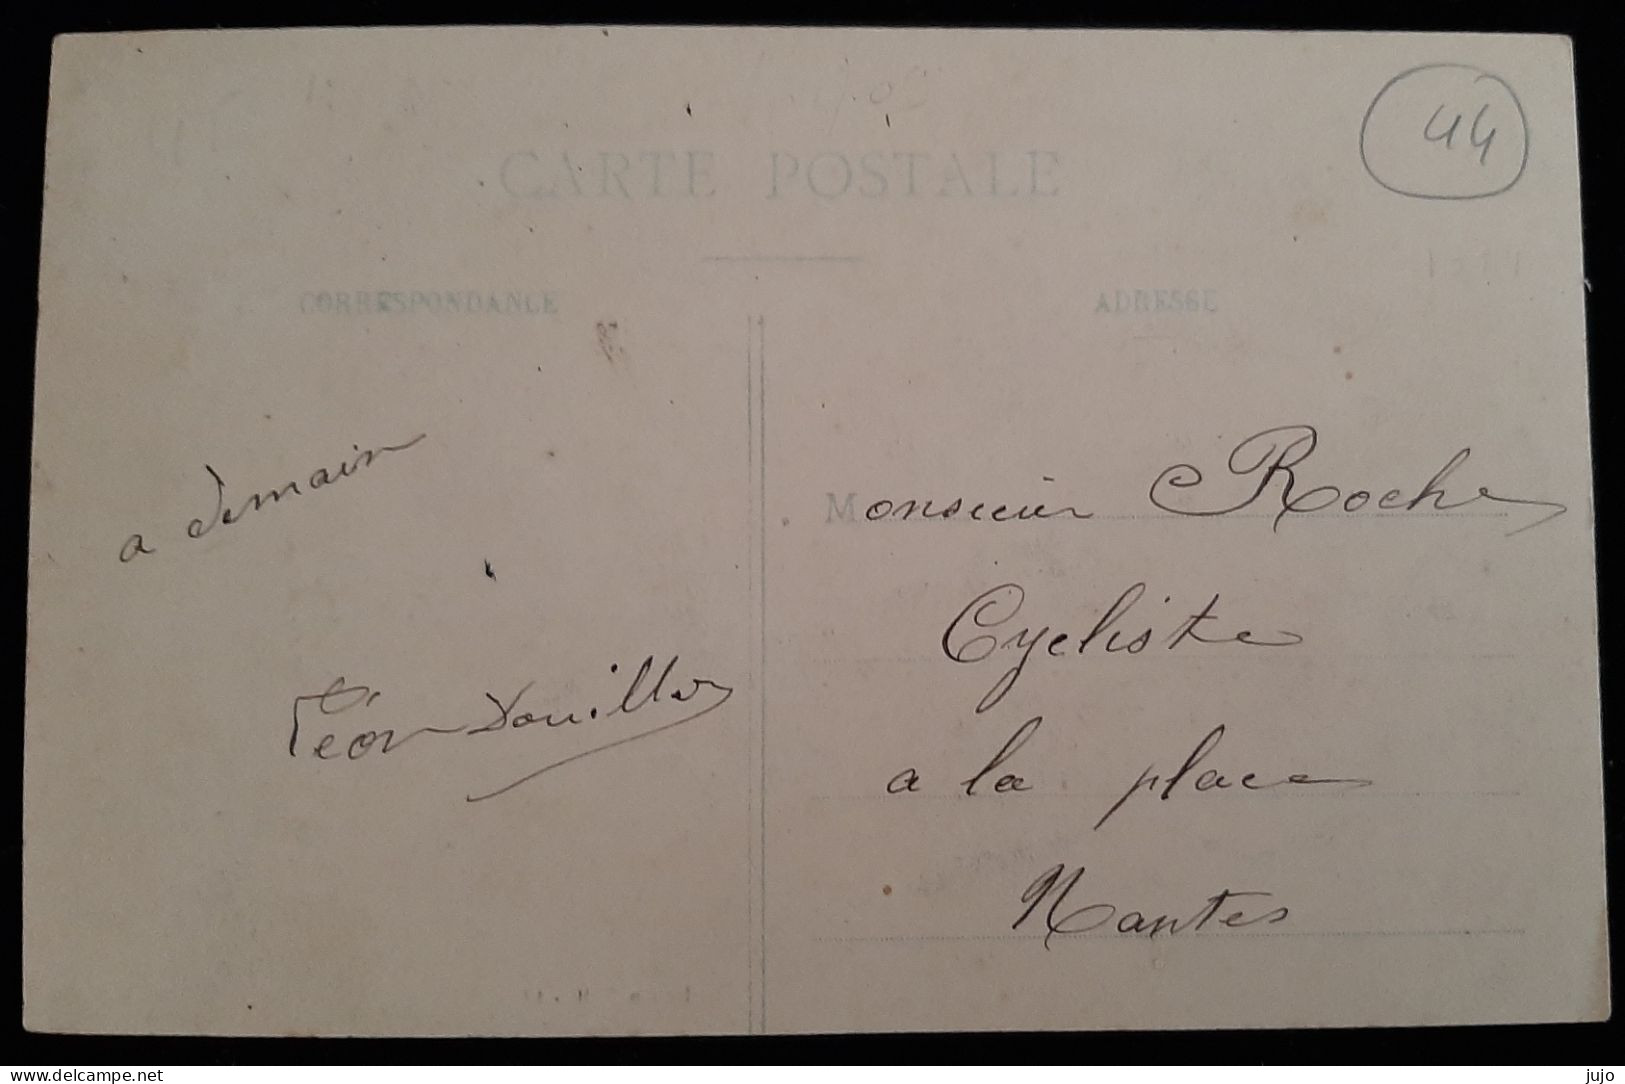 44
CARTE POSTALE
CORRESPONDANCE
ADRESSE
a demain
Léon
Monsieur Roche
Cycliste
a la place
Nantes
www.delcampe.net
jujo